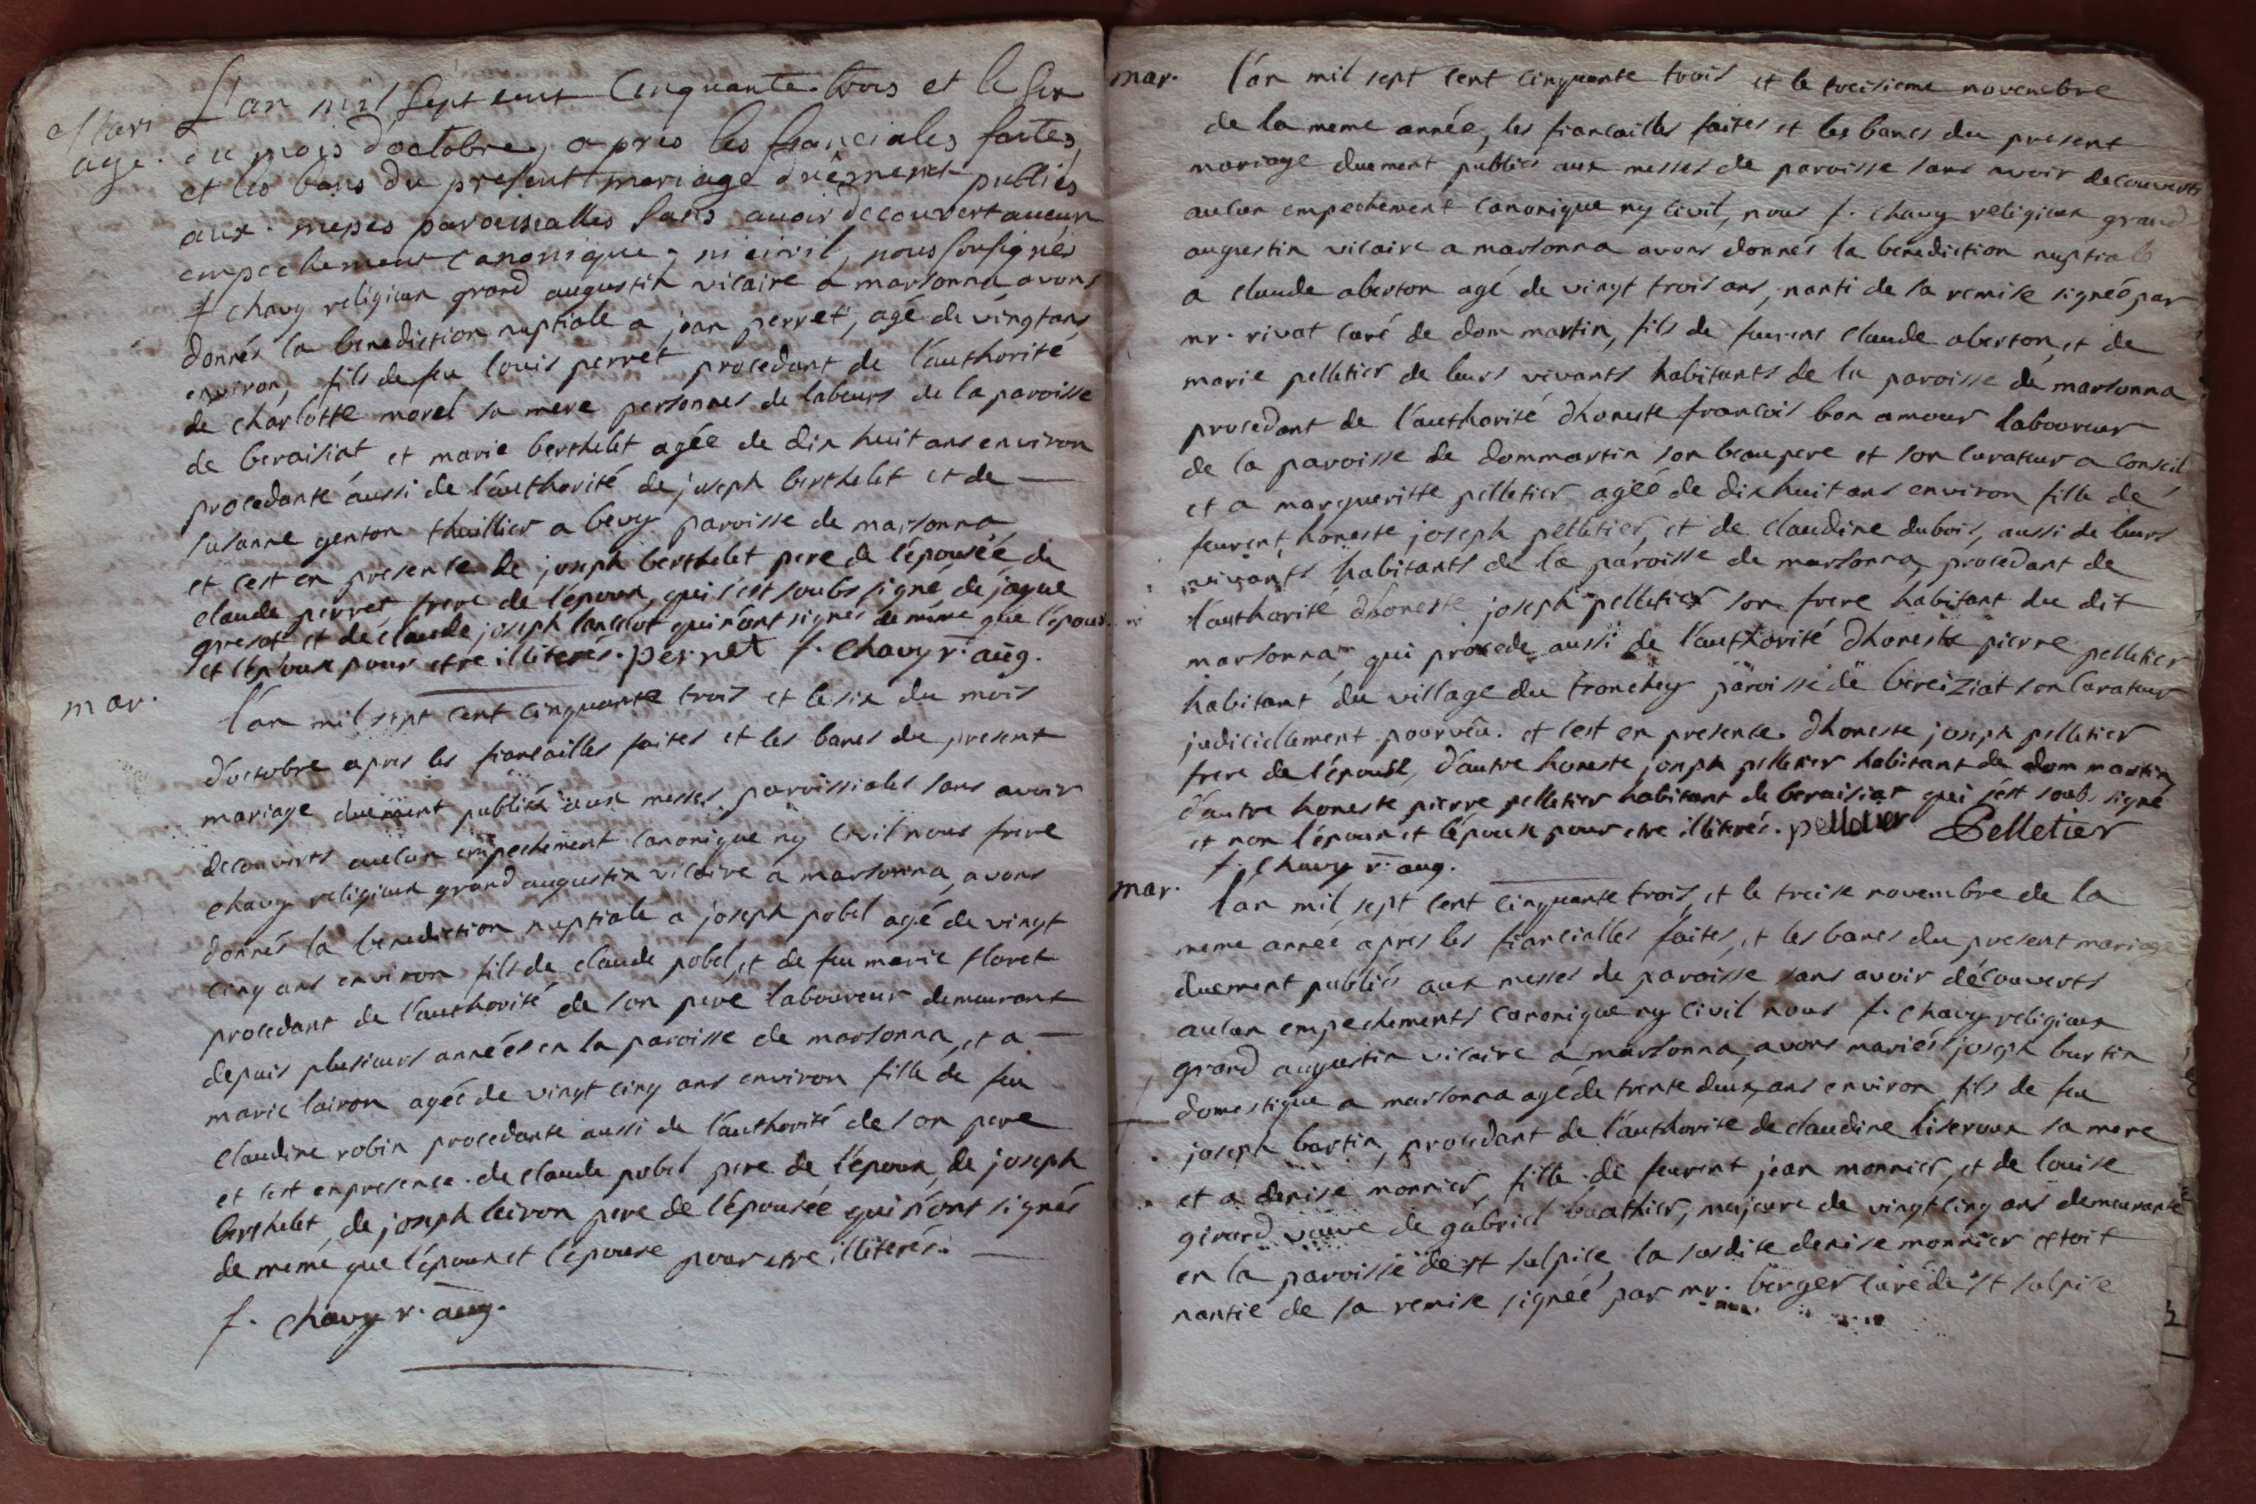 Mari
age.
L'an mil sept cent Cinquante trois et le six
du mois d'octobre, apres les fianciales faites,
et les bans du present mariage duëment publiés
aux messes paroissialles sans avoir decouvert aucun
empechement canonique, ni civil, nous sousignés
f chavy religieux grand augustin vicaire a marsonna avons
donnés la benediction nuptiale a jean perret, agé de vingt ans
environ, fils de feu louis perret procedant de l'authorité
de charlotte morel sa mere personnes de labeurs de la paroisse
de beraisiat et marie berthelet agée de dix huit ans environ
procedante aussi de l'authorité de joseph berthelet et de
susanne genton thuillier a bevy paroisse de marsonna
et c'est en presence de joseph berthelet pere de l'épousée de
claude perret frere de l'époux, qui s'est soubs signé, de jaque
gresot et de claude joseph lancelot qui n'ont signés de même que l'épouse
et l'époux pour etre illiterés. pernet f. chavy r. aug.
mar.
l'an mil sept cent cinquante trois et le six du mois
d'octobre apres les fiancailles faites et les bancs du present
mariage duement publiés aux messes paroissiales sans avoir
decouverts aucun empechement canonique ny civil nous frere
chavy religieux grand augustin vicaire a marsonna, avons
donnés la benediction nuptiale a joseph pobel agé de vingt
cinq ans environ fils de claude pobel, et de feu marie floret
procedant de l'authorité de son pere laboureur demeurant
depuis plusieurs années en la paroisse de marsonna, et a
marie loiron agée de vingt cinq ans environ fille de feu
claudine robin procedante aussi de l'authorité de son pere
et c'est en presence de claude pobel pere de l'époux, de joseph
berthelet, de joseph leiron pere de l'épousée qui n'ont signés
de memé que l'époux et l'épouse pour etre illiterés.
f. chavy r. aug.
mar.
l'an mil sept cent cinquante trois et le treisieme novembre
de la meme année, les fiancailles faites et les bancs du present
mariage duement publiés aux messes de paroisse sans avoir decouverts
aucun empechement canonique ny civil, nous f. chavy religieux grand
augustin vicaire a marsonna avons donnés la benediction nuptiale
a claude aberton agé de vingt trois ans, nanti de sa remise signée, par
mr. rivat curé de dom martin, fils de feurent claude aberton, et de
marie pelletier de leurs vivants habitants de la paroisse de marsonna
procedant de l'authorité dhoneste francois bon amour laboureur
de la paroisse de dommartin son beau pere et son curateur a conseil
et a margueritte pelletier agée de dix huit ans environ fille de
feurent honeste joseph pelletier, et de claudine dubois, aussi de leurs
vivants habitants de la paroisse de marsonna, procedant de
l'authorité dhoneste joseph pelletier son frere habitant du dit
marsonna, qui procede aussi de l'authorité dhoneste pierre pelletier
habitant du village du tronchey paroisse de bereiziat son curateur
judiciellement pourvêu. et c'est en presence dhoneste joseph pelletier
frere de l'épouse, d'autre honeste joseph pelletier habitant de dom martin
d'autre honeste pierre pelletier habitant de beraisiat qui s'est soubs signé
et non l'époux et l'épouse pour etre illiterés. pelletier Pelletier
f. chavy r. aug.
mar.
l'an mil sept cent cinquante trois, et le treise novembre de la
meme année apres les fiancialles faites, et les bancs du present mariage
duement publiés aux messes de paroisse sans avoir découverts
aucun empechements canonique ny civil nous f. chavy religieux
grand augustin vicaire a marsonna, avons mariés joseph burtin
domestique a marsonna agé de trente deux ans environ fils de feu
joseph bartin, procedant de l'authorite de claudine liseroux sa mere
et a denise monnier, fille de feurent jean monnier, et de louise
girard veuve de gabriel buathier, majeure de vingt cinq ans demeurante
en la paroisse de st sulpice, la susdite denise monnier etoit
nantie de sa remise signée par mr. berger curé de st sulpice